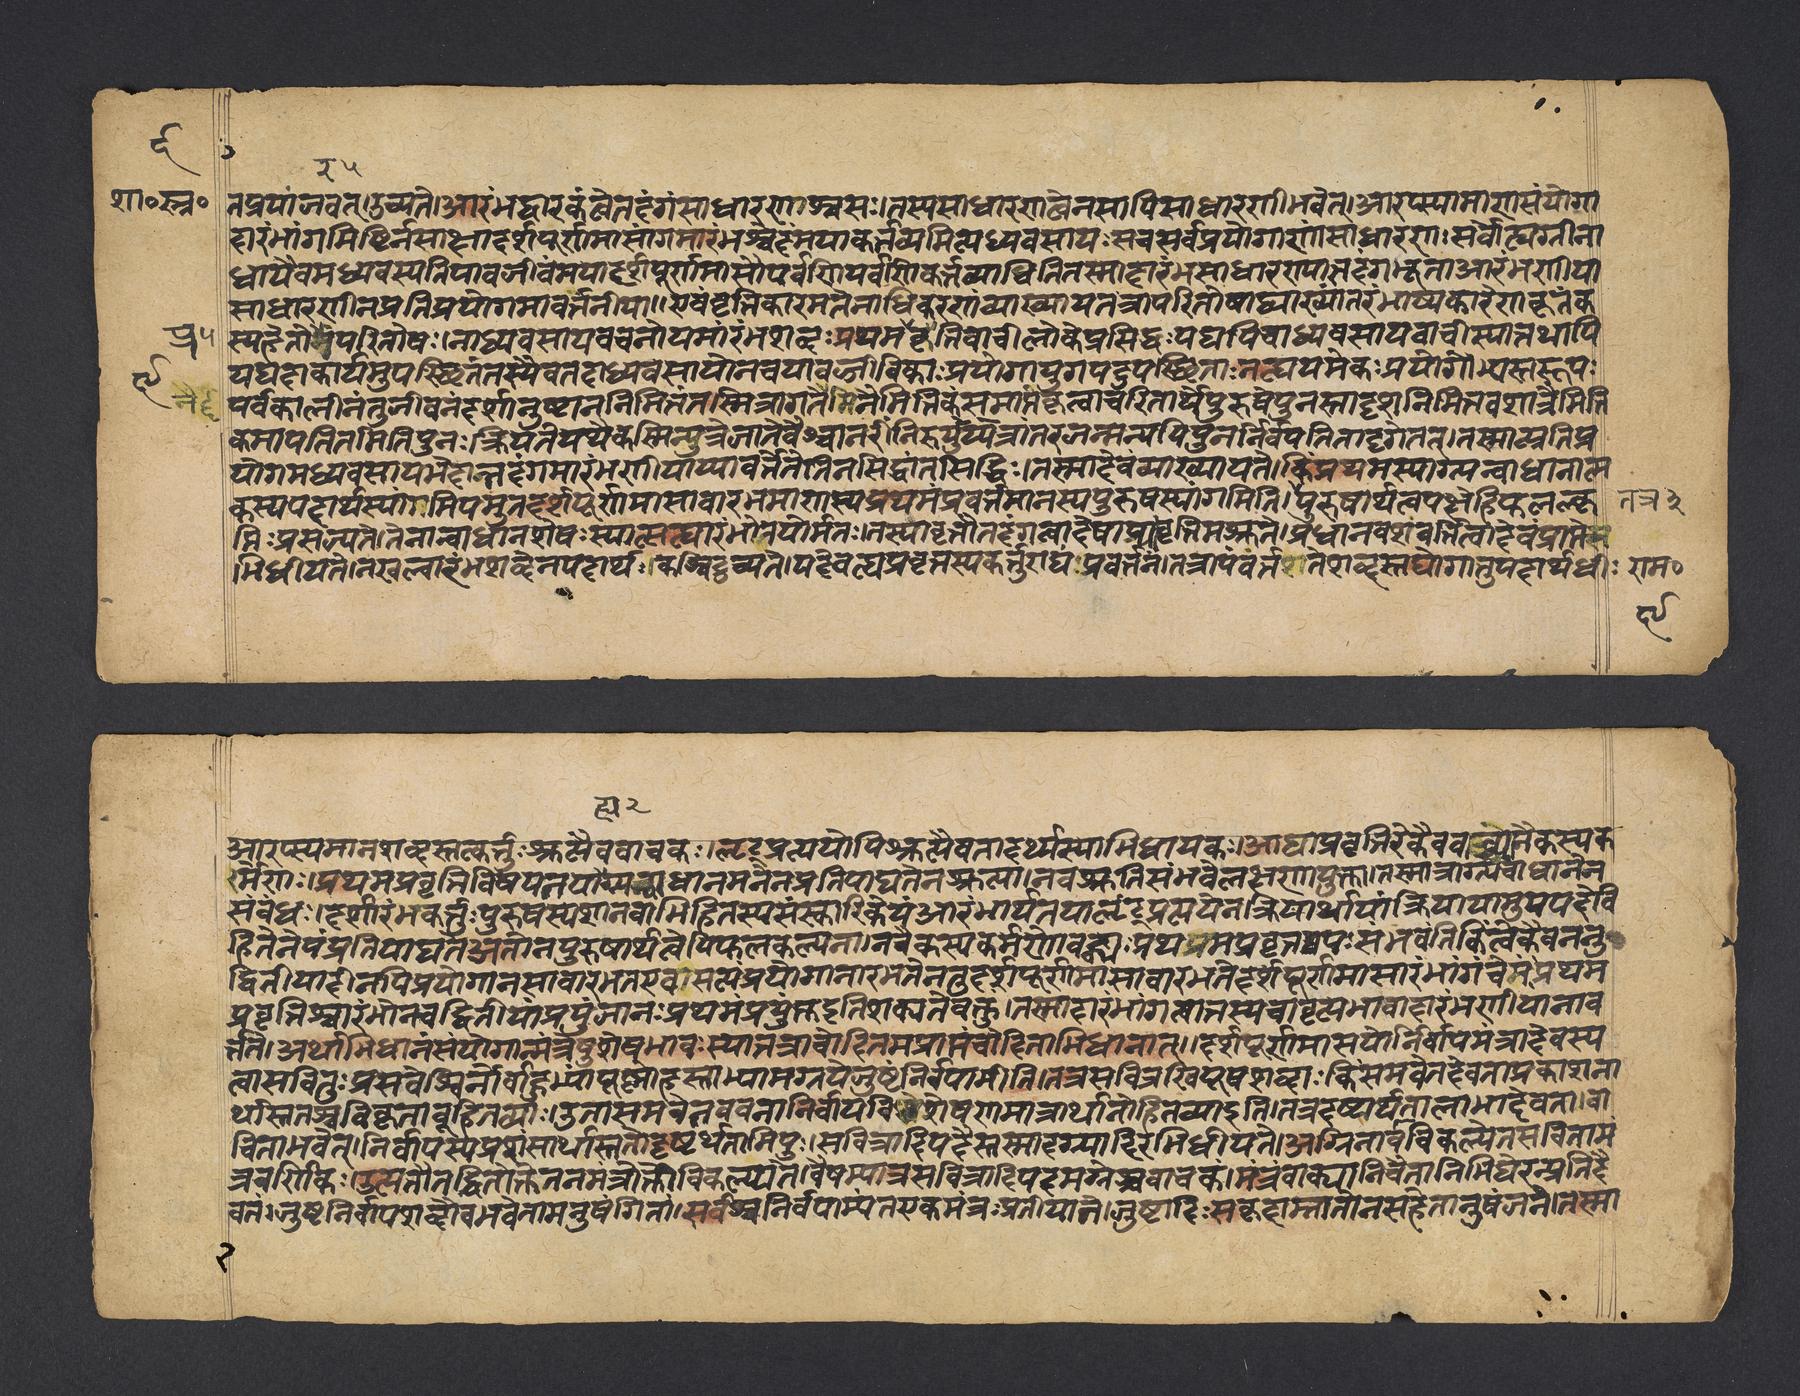 शा०स्त्र०
तप्रयांजवत्।उच्यते।आरंभद्वारकंह्येतदंगंसाधारणाश्चसः।तस्यसाधारणत्वेनसापिसाधारणीभवेत्।आरप्स्यामाणसंयोगा
दारंभांगमिष्टिर्नसाक्षाद्दर्शपूर्णमासांगमारंभश्चदंमयाकर्त्तव्यमित्यध्यवसायःसचसर्वप्रयोगाणांसाधारणः।सर्वोह्यग्नीना
धायैवमध्यवस्यतियावज्जीवंमयादर्शपूर्णमासौपर्वणिपर्वणिकर्त्तव्याविति।तस्मादारंभसाधारण्यात्तदंगभूताआरंभणीया
साधारणीनप्रतिप्रयोगमावर्त्तनीया॥एवंवृत्तिकारमतेनाधिकरणंव्याख्यायतत्रापरितोषाद्व्याख्यांतरंभाष्यकारेणकृतंक
स्पुनर्हेतोपरितोषः।नाध्यवसायवचनोयमारंभशब्दःप्रथमवृत्तिवाचीलोकेप्रसिद्धःयद्यपिवाध्यवसायवाचीस्यात्तथापि
यद्यदाकार्यमुपस्छितंतस्यैवतदाध्यवसायोनचयावज्जीविकाःप्रयोगायुगपदुपस्छिताःनह्ययमेकःप्रयोगोभ्यस्तरूपः
पर्वकालीनंतुजीवनंदर्शानुष्टाननिमित्तंतस्मिन्नागतेनैमित्तिकंसमाप्तंकृत्वाचरितार्थेपुरुषेपुनस्तादृशनिमित्तवशान्नैमित्ति
कमापतितमितिपुनःक्रियतेयथैकस्मिन्पुत्रेजातेवैश्वानरीनिरुप्यपुत्रांतरजन्मन्यपिपुनर्निर्वपतितादृगेतत्।तस्मात्प्रतिप्र
योगमध्यवसायभेदात्तदंगमारंभणीयाप्यावर्त्ततेतिनसिद्धांतसिद्धिः।तस्मादेवंव्याख्यायते।किंप्रथमस्याग्न्यन्वाधानात्म
कस्यपदार्थस्यांगमियमुतदर्शपूर्णमासावारभमाणस्यप्रथमंप्रवर्त्तमानस्यपुरुषस्यांगमिति।पुरुषार्थत्वपक्षेहिफलक्लृ
प्तिःप्रसज्यते।तेनान्वाधानशेषःस्यात्सह्यारंभोनयोर्मतः।तस्यावृत्तौतदंगत्वादेषाप्यावृत्तिमश्नुते।प्रधानवशवर्तित्वादेवंप्राप्ते
भिधीयते।नखल्वारंभशब्देनपदार्थःकश्चिदुच्यते।यदैवह्यप्रवृत्तस्यकर्त्तुराद्यःप्रवर्त्तने।तत्रायंवर्त्ततेशब्दस्तद्योगात्तुपदार्थधीः
राम०
आरप्स्यमानशब्दस्तत्कर्त्तुःश्रुत्यैववाचकः।लृट्प्रत्ययोपिश्रुत्यैवतादर्थ्यस्याभिधायकः।आद्याप्रवृत्तिरेकैव
र्मणः।प्रथमप्रवृत्तिविषयतयाग्न्यन्वाधानमनेनप्रतिपाद्यतेनश्रुत्या।नचश्रुतिसंभवेलक्षणायुक्ता।तस्मान्नाग्न्यन्वाधानेन
संबंधः।दर्शारंभकर्त्तुःपुरुषस्यशानचाभिहितस्यसंस्कारिकेयंआरंभार्थतयालृट्प्रत्ययेन।क्रियार्थायांक्रियायामुपपदेवि
हितेनेयंप्रतिपाद्यतेअतोनपुरुषार्थत्वेपिफलकल्पना।नचैकस्यकर्मणोबह्व्यःप्रथमप्रवृत्तयःसंभवंति
द्वितीयादीनपिप्रयोगानसावारभतएवसत्यंप्रयोगानारभतेनतुदर्शपूर्णमासावारभतेदर्शपूर्णमासारंभांगंचेमंप्रथम
प्रवृत्तिश्चारंभोनचद्वितीयांप्रयुंजानःप्रथमंप्रयुंक्तइतिशक्यतेवक्तुं।तस्मादारंभांगत्वात्तस्यचावृत्त्यभावादारंभणीयानाव
र्त्तते।अर्थाभिधानसंयोगान्मंत्रेषुशेषभावःस्यात्तत्राचोदितमप्राप्तंचोदिताभिधानात्॥दर्शपूर्णमासयोर्निर्वापमंत्रादेवस्य
त्वासवितुःप्रसवेश्विनोर्बाहुभ्यांपूष्णोहस्ताभ्यामग्नयेजुष्टंनिर्वपामीति।तत्रसवित्रश्विपूषशब्दाःकिंसमवेतदेवताप्रकाशना
र्थास्ततश्चविकृतावूहितव्याः।उतासमवेतवचनानिर्वापविशेषणमात्रार्थानोहितव्याइति।तत्रदृष्टार्थतालाभाद्देवता।वा
चिताभवेत्।निर्वापस्यप्रशंसार्थास्ततोदृष्टार्थतामियुः।सवित्रादिपदैस्तस्मादग्न्यादिरभिधीयते।अग्निनावंविकल्पेतसवितामं
त्रवर्णिकः।उत्पत्तौतद्धितोक्तेनतनमंत्रोक्तोविकल्प्यते।वैषम्यान्नसवित्रादिपदमग्नेश्चवाचकं।मंत्रंवाक्यानिचैतानिभिद्येरन्प्रतिदै
वतं।जुष्टनिर्वापशब्दौचभवेतामनुषंगिता।सर्वेश्चनिर्वपाम्यंतएकमंत्रःप्रतीयते।जुष्टादिःसकृदाम्नातोनसहेतानुषंजनं।तस्मा